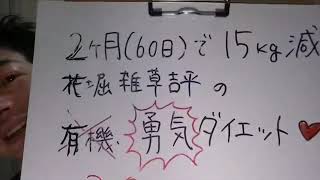 2ヶ月(60日)で15kg減
花堀雑草吾平の
有機 勇気ダイエット❤